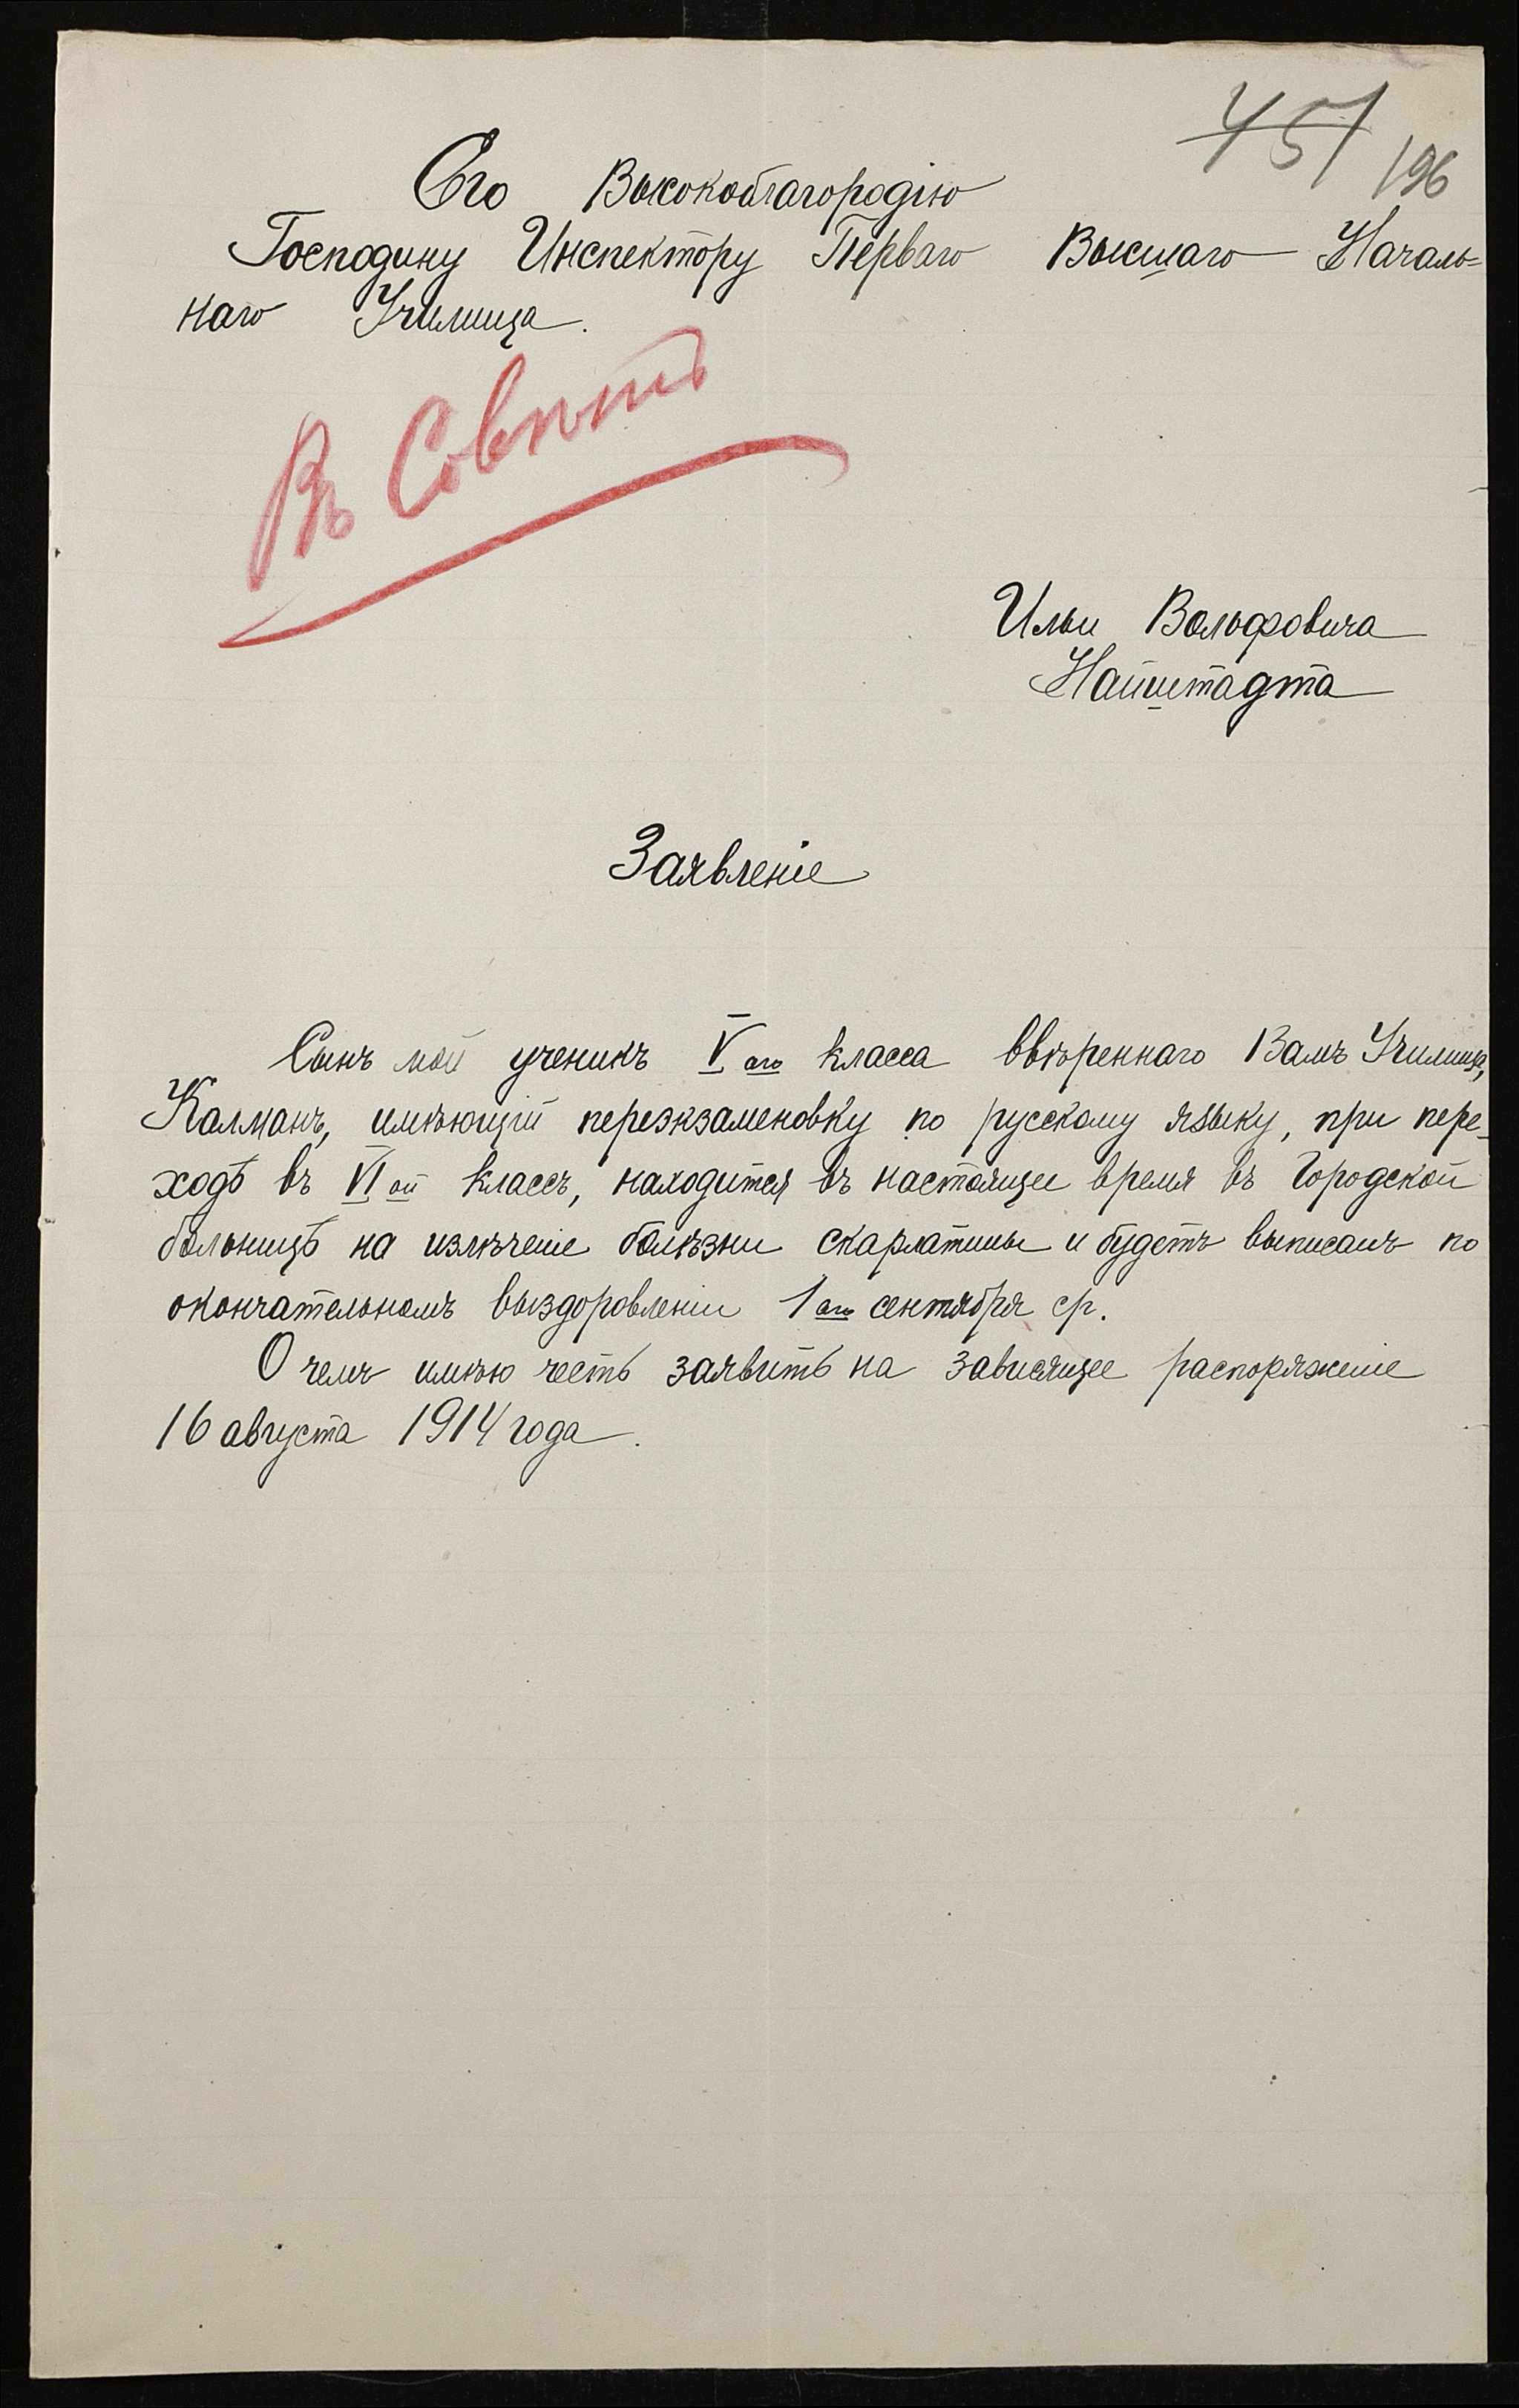 451 196
Его Высокоблагородію
Господину Инспектору Перваго Высшаго Началь=
наго Училища.
Въ Совѣтъ
Ильи Вольфовича
Найштадта
Заявленіе
Сынъ мой ученикъ V аго класса ввѣреннаго Вамъ Училища,
Калманъ, имѣющій переэкзаменовку по русскому языку, при пере-
ходѣ въ VI ой классъ, находится въ настоящее время въ Городской
больницѣ на излѣченіе болѣзни скарлатины и будетъ выписанъ по
окончательномъ выздоровленіи 1 аго сентября ср.
О чемъ имѣю честь заявить на зависящее распоряженіе
16 августа 1914 года.